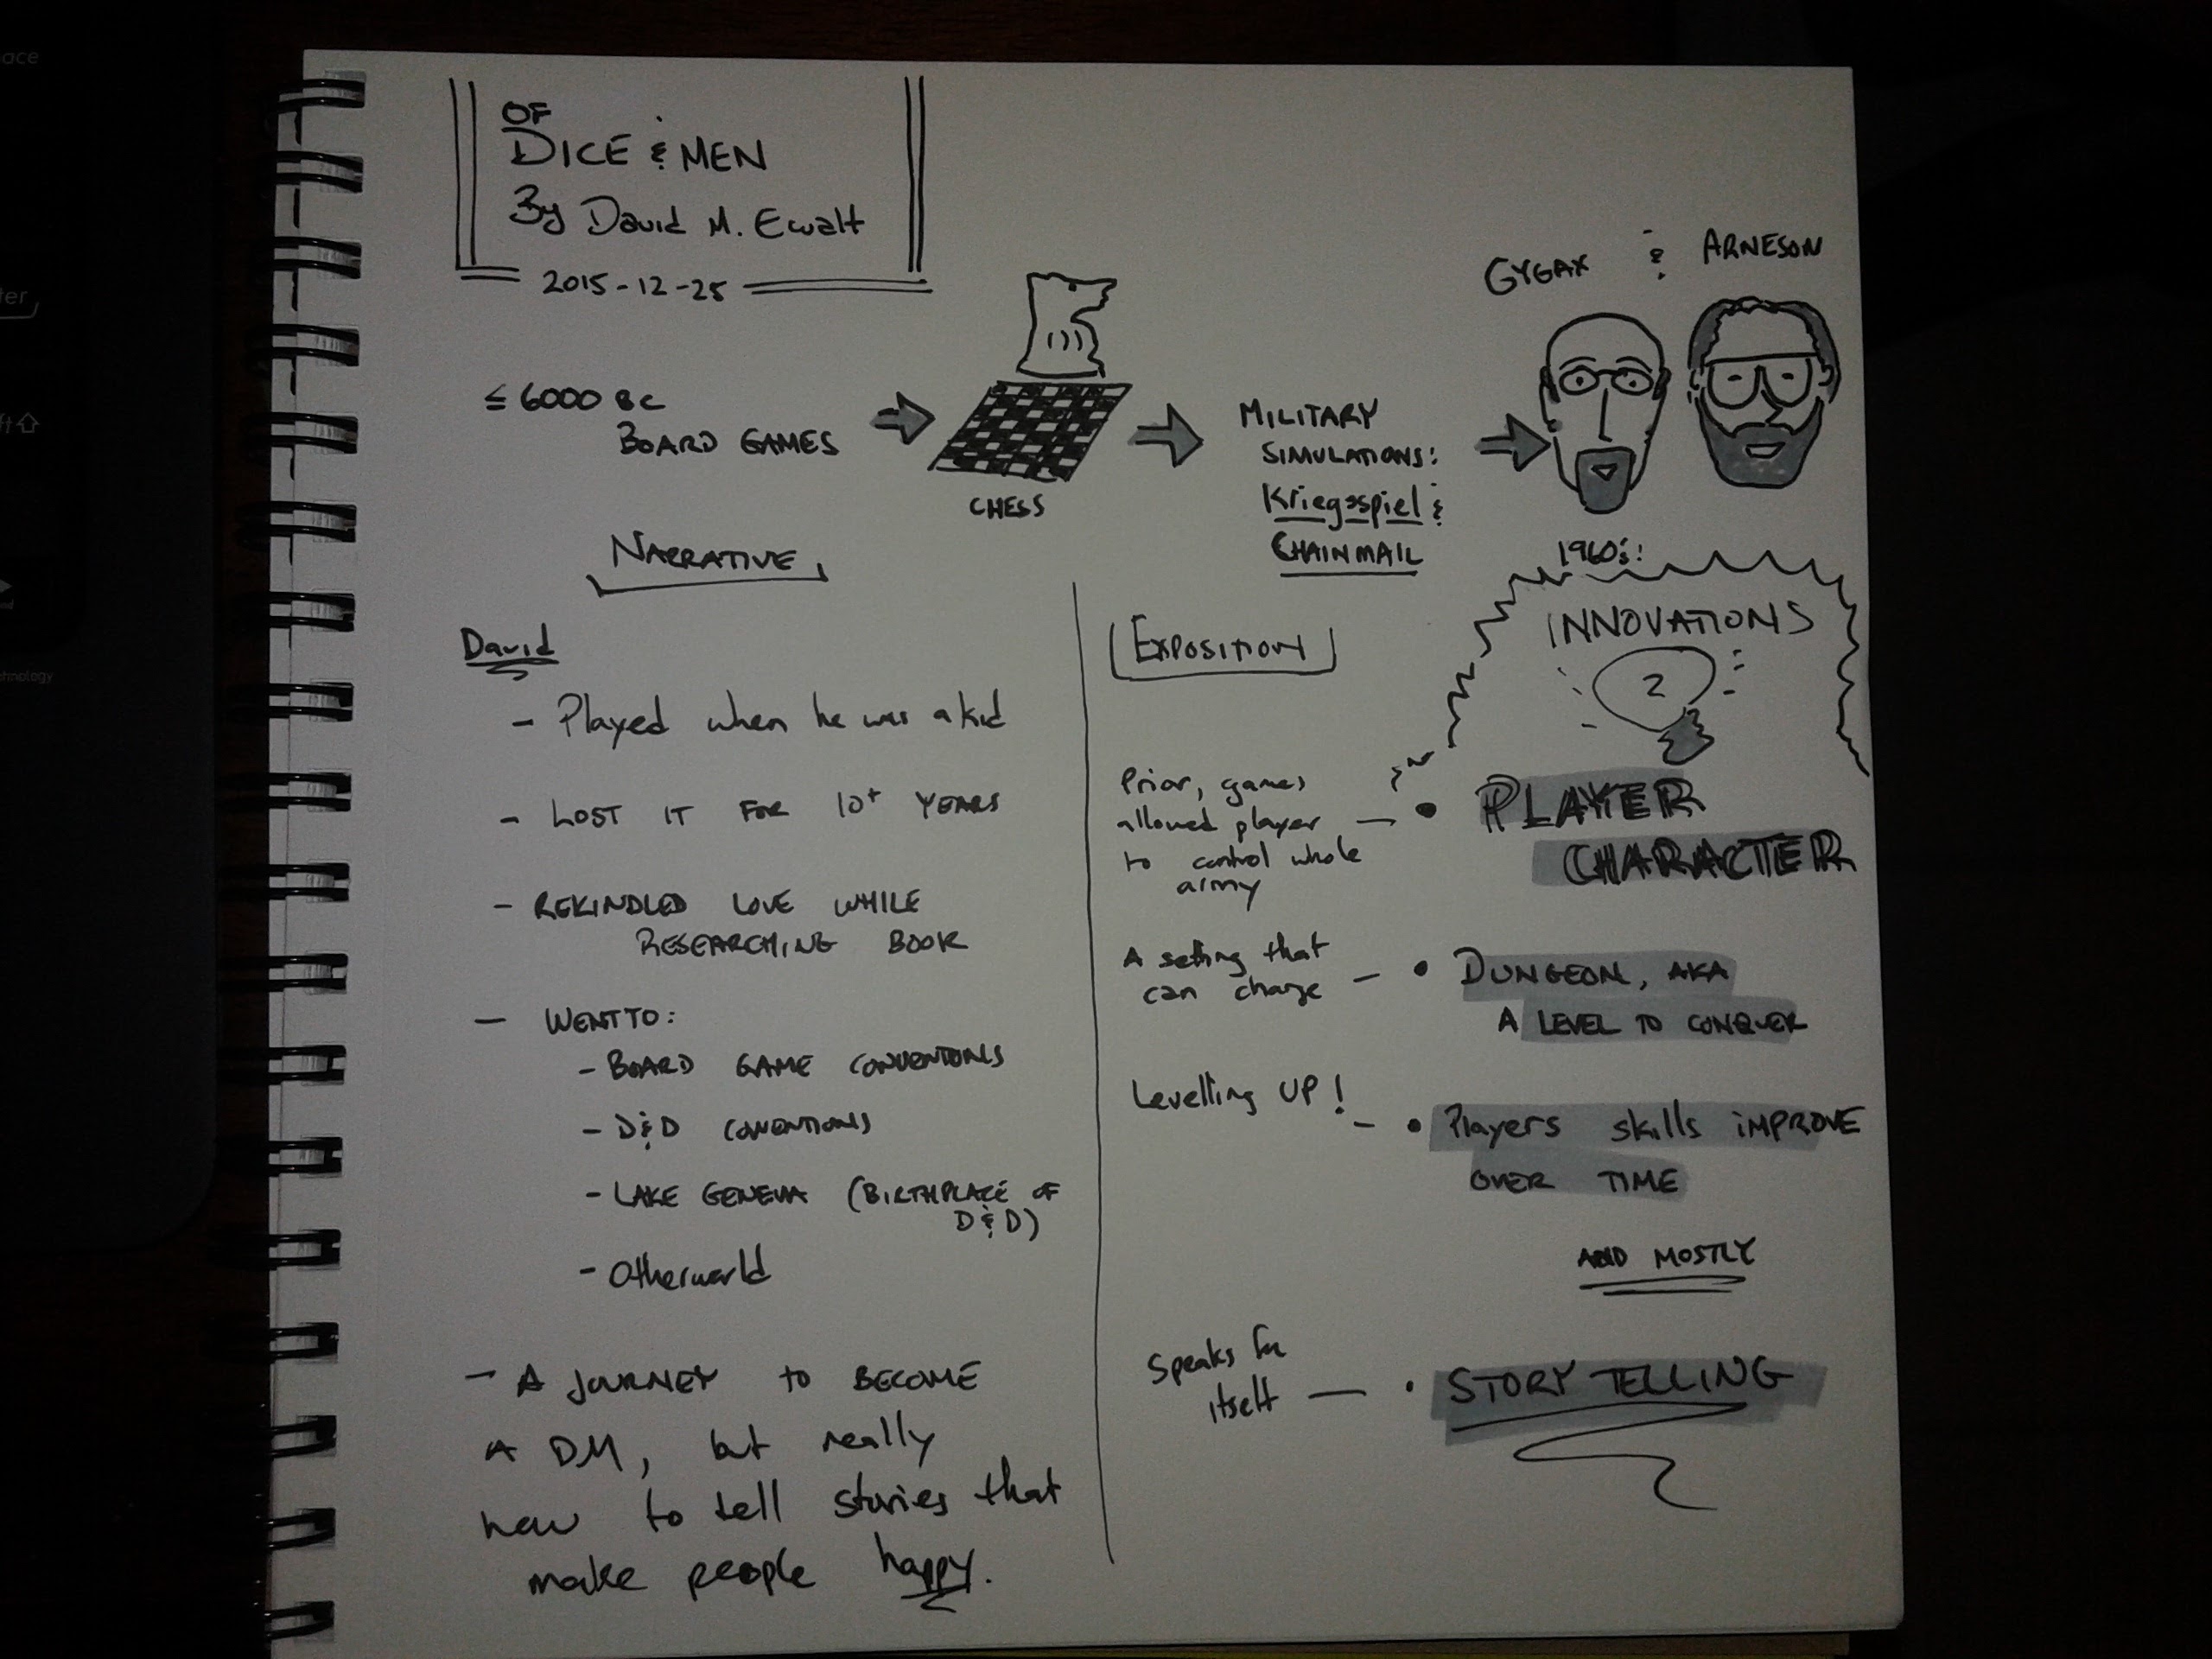 OF
DICE & MEN
By David M. Ewalt
2015-12-25
≤ 6000 BC
BOARD GAMES
CHESS
MILITARY
SIMULATIONS:
Kriegsspiel &
CHAINMAIL
GYGAX & ARNESON
1960s:
INNOVATIONS
2
NARRATIVE
David
- Played when he was a kid
- LOST IT FOR 10+ YEARS
- REKINDLED LOVE WHILE
RESEARCHING BOOK
- WENT TO:
- BOARD GAME CONVENTIONS
- D&D CONVENTIONS
- LAKE GENEVA (BIRTHPLACE OF
D&D)
- Otherworld
- A JOURNEY to BECOME
A DM, but really
how to tell stories that
make people happy.
EXPOSITION
Prior, games
allowed player
to control whole
army
- • PLAYER
CHARACTER
A setting that
can change
- • DUNGEON, AKA
A LEVEL TO CONQUER
Levelling UP!
- • Players skills IMPROVE
OVER TIME
AND MOSTLY
Speaks for
itself
- • STORY TELLING
ace
ter
ft
chnology